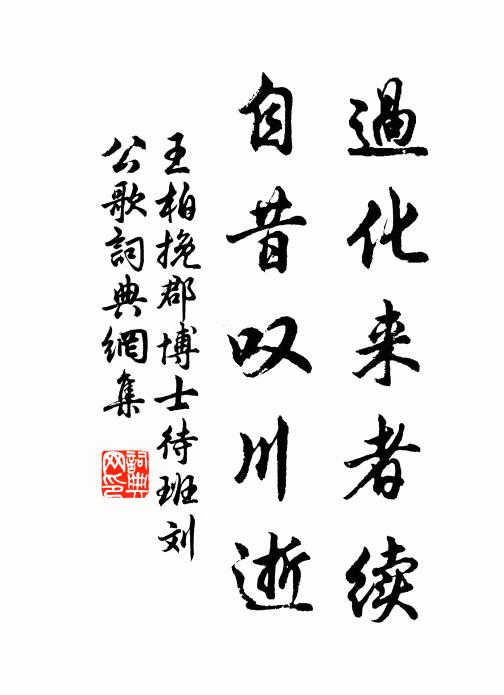 過化来者续
自昔叹川逝
王柏挽郡博士待班刘
公歌詞典網集
詞典网印